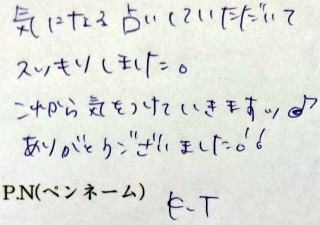 気になる占いしていただいて
スッキリしました。
これから気をつけていきますッ♪
ありがとうございました。!!
P.N(ペンネーム) K-T